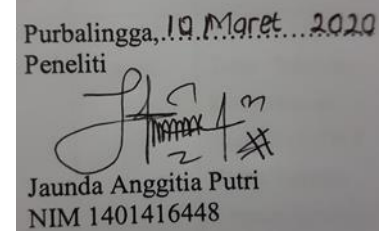 Purbalingga, 10 Maret 2020
Peneliti
Jaunda Anggitia Putri
NIM 1401416448